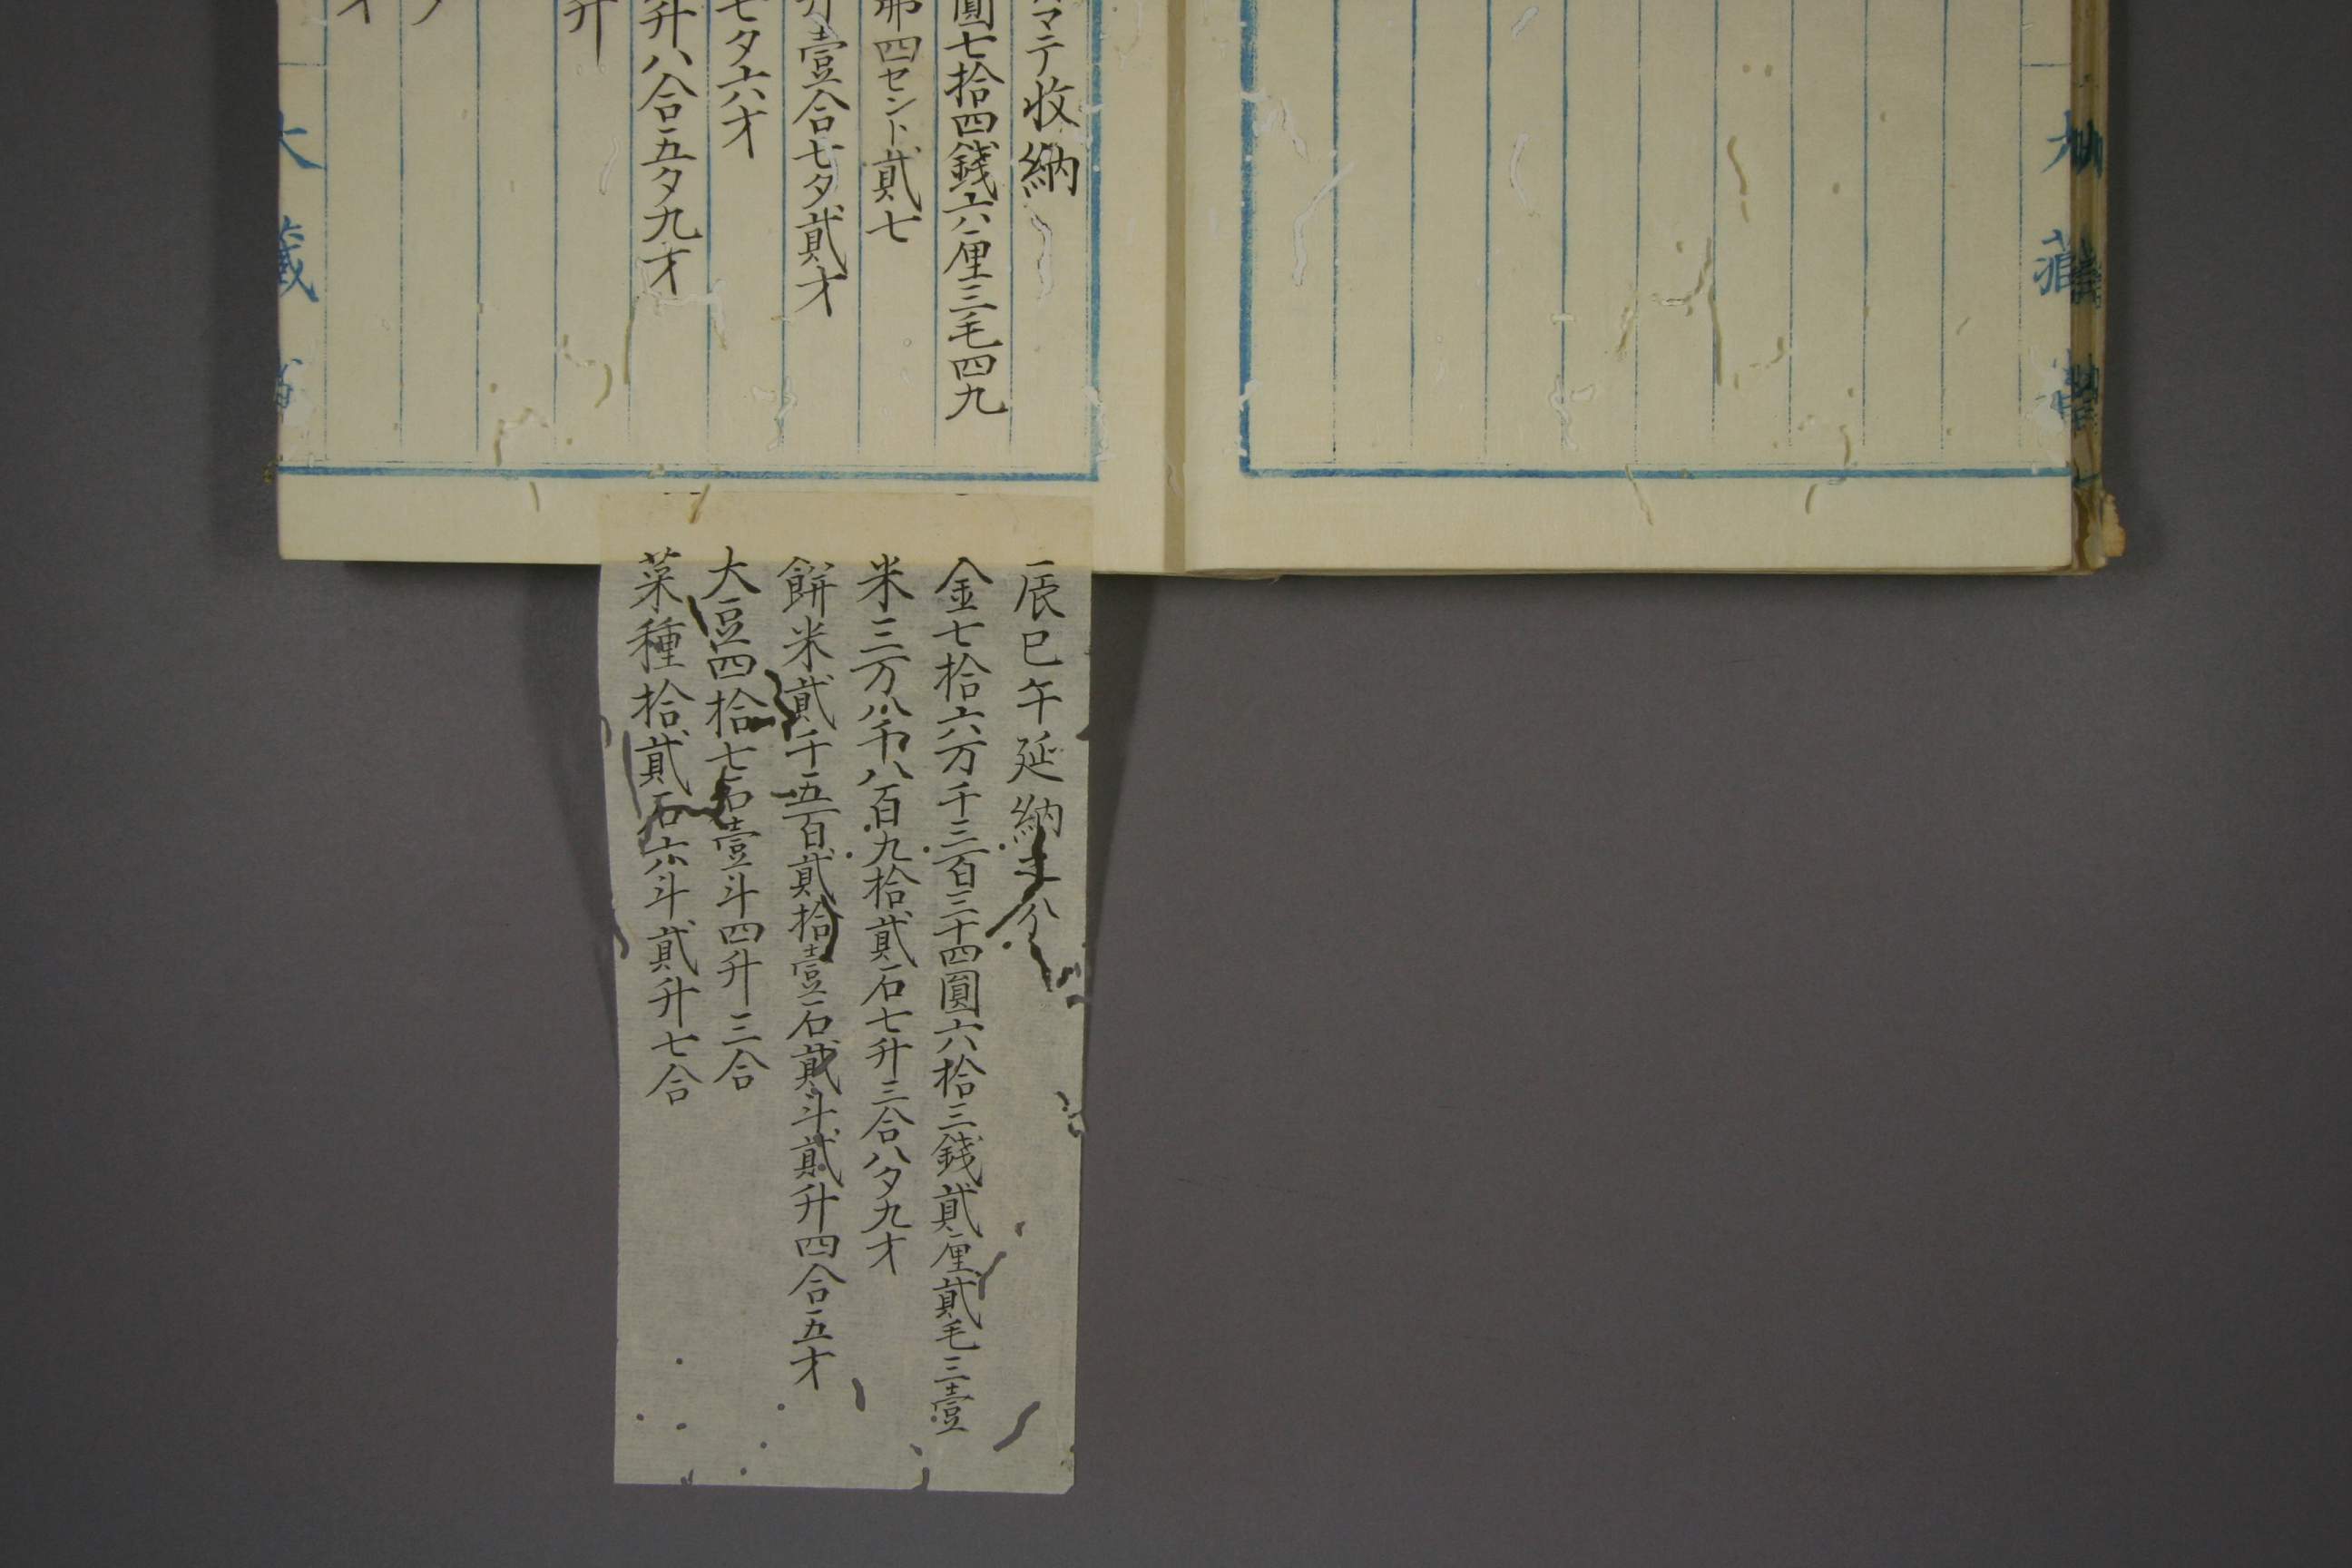 大藏省
マテ收納
圓七拾四錢六厘三毛四九
弗四セント貳七
壹合七夕貳才
七夕六才
升八合五夕九才
升
才
大藏省
辰巳午延納未分
金七拾六万千三百三十四圓六拾三錢貳厘貳毛三壹
米三万八千八百九拾貳石七升三合八夕九才
餅米貳千五百貳拾壹石貳斗貳升四合五才
大豆四拾七石壹斗四升三合
菜種拾貳石六斗貳升七合